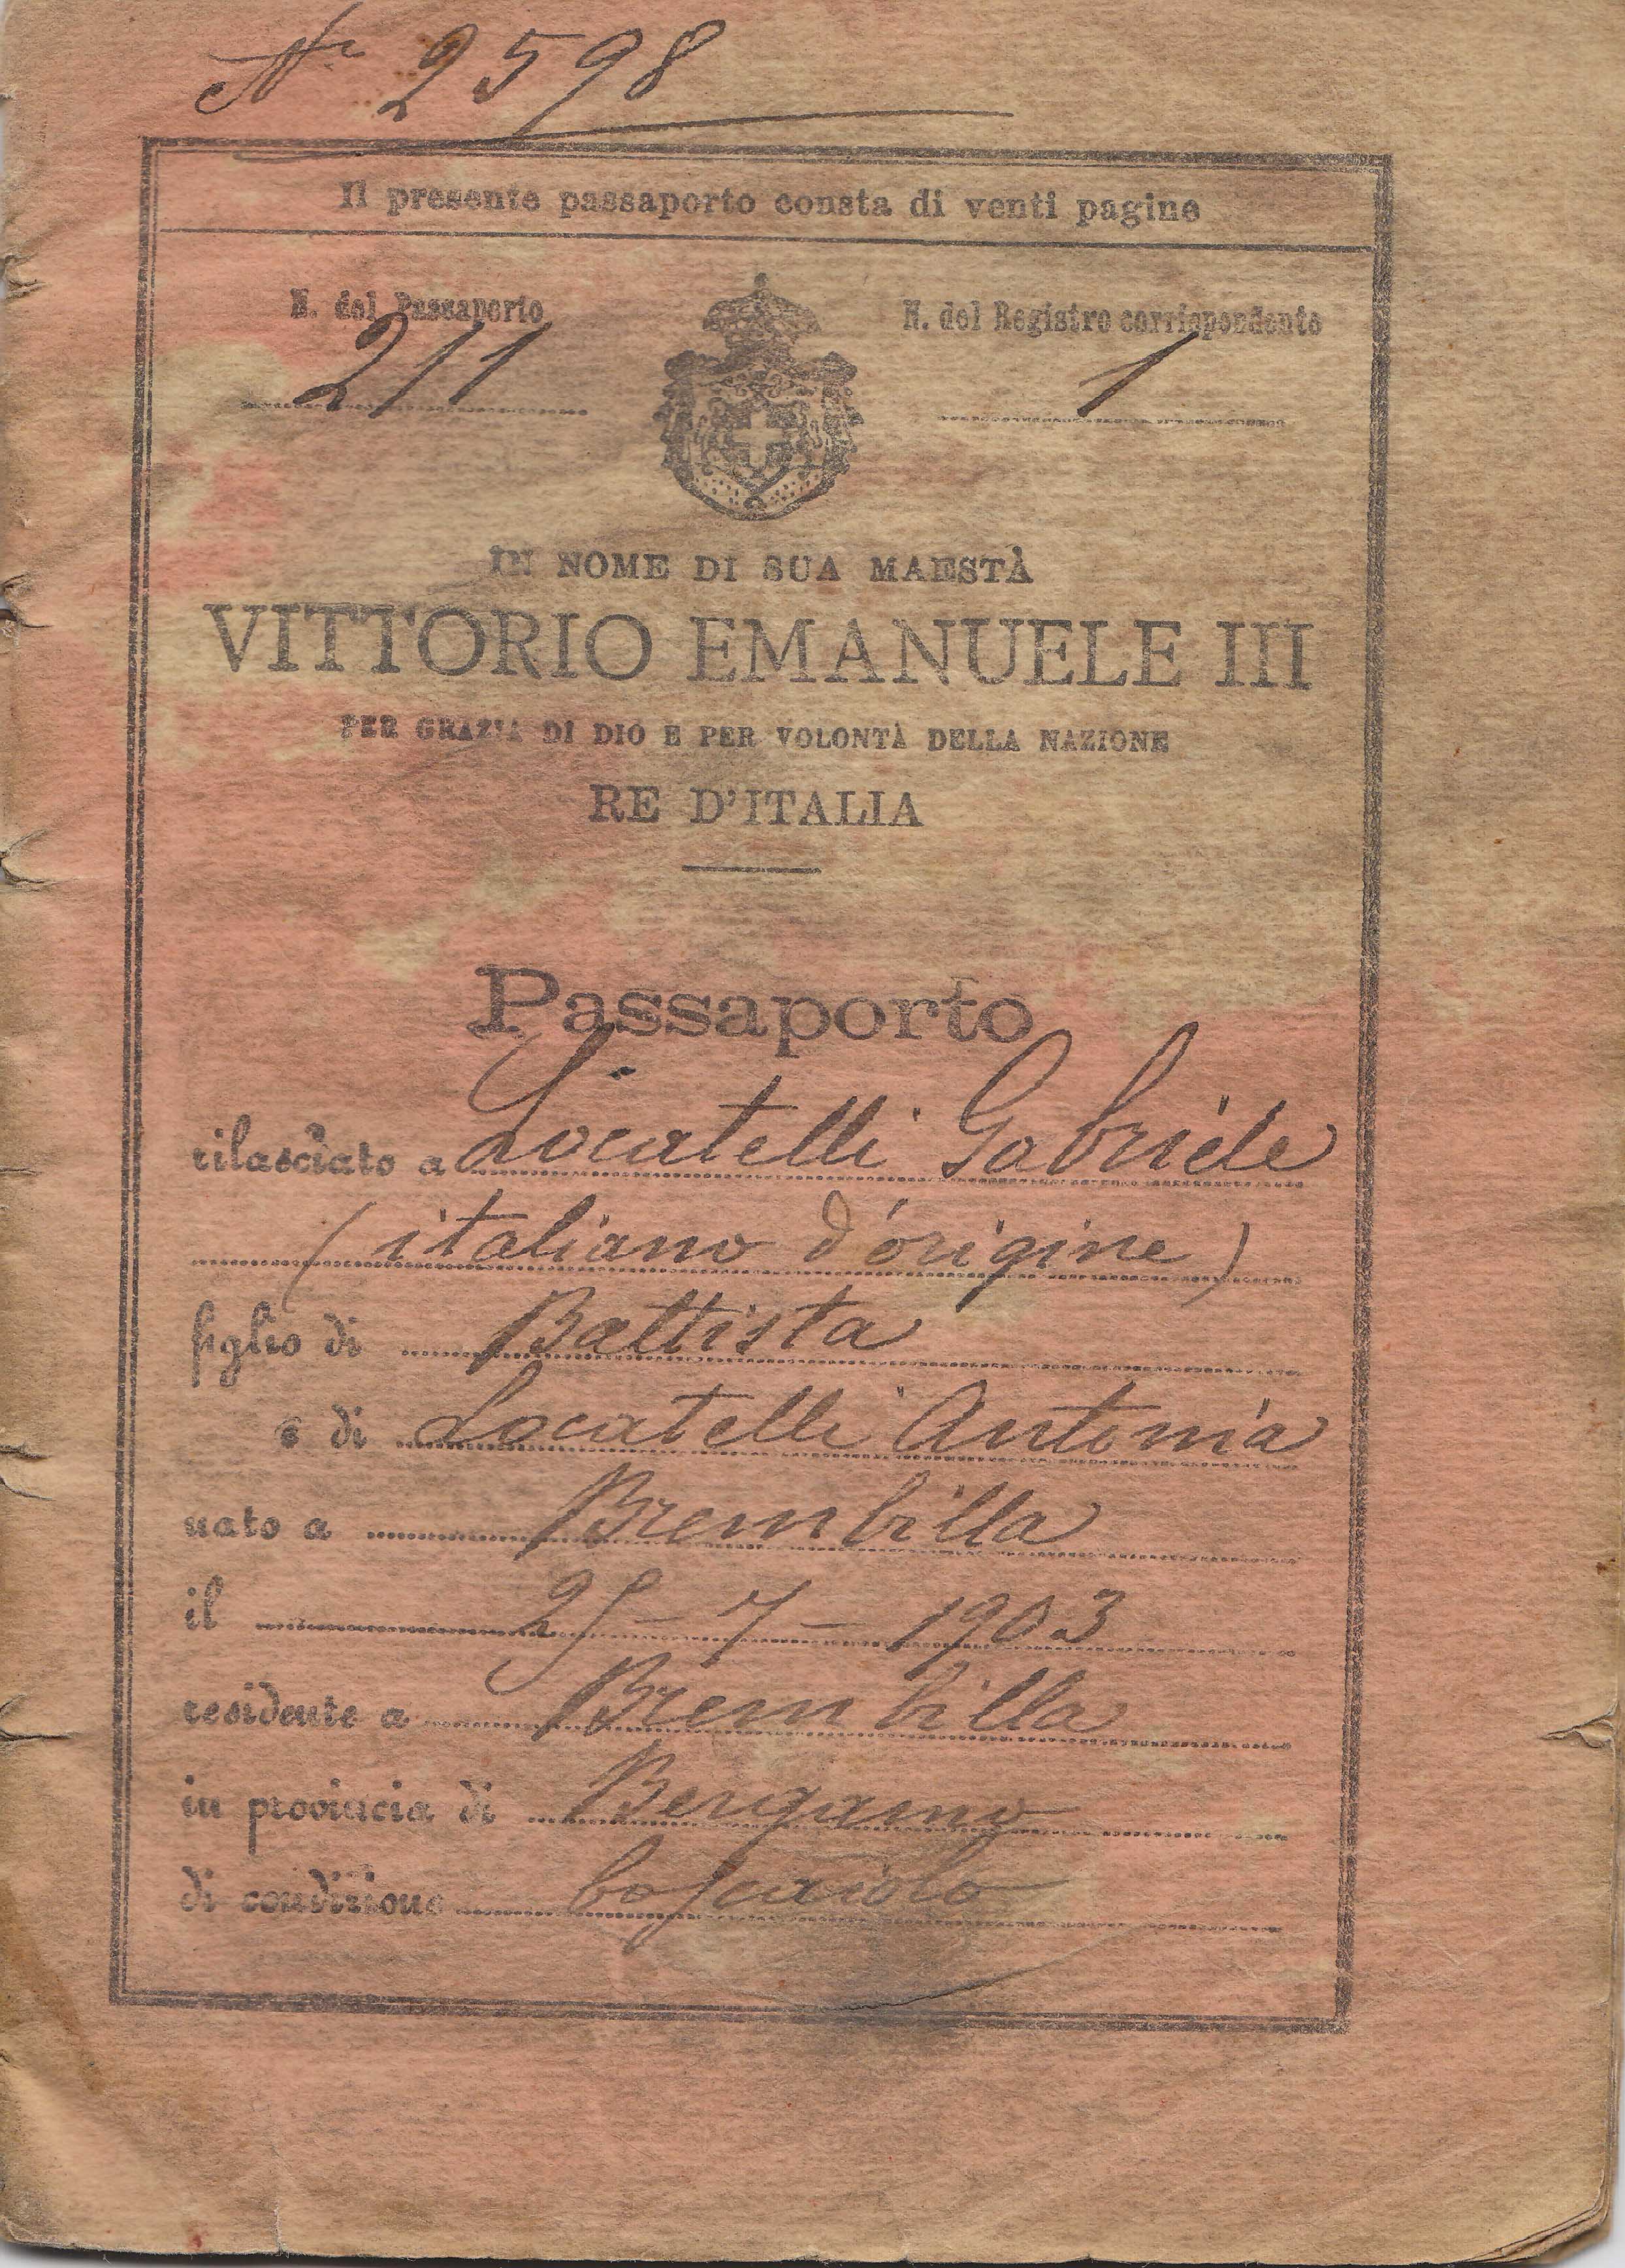 Nr 2598
Il presente passaporto consta di venti pagine
N. del Passaporto
N. del Registro corrispondente
211
1
IN NOME DI SUA MAESTÀ
VITTORIO EMANUELE III
PER GRAZIA DI DIO E PER VOLONTÀ DELLA NAZIONE
RE D'ITALIA
Passaporto
rilasciato a Locatelli Gabriele
(italiano d'origine)
figlio di Battista
e di Locatelli Antonia
nato a Brembilla
il 25-7-1903
residente a Brembilla
in provincia di Bergamo
di condizione boscaiolo